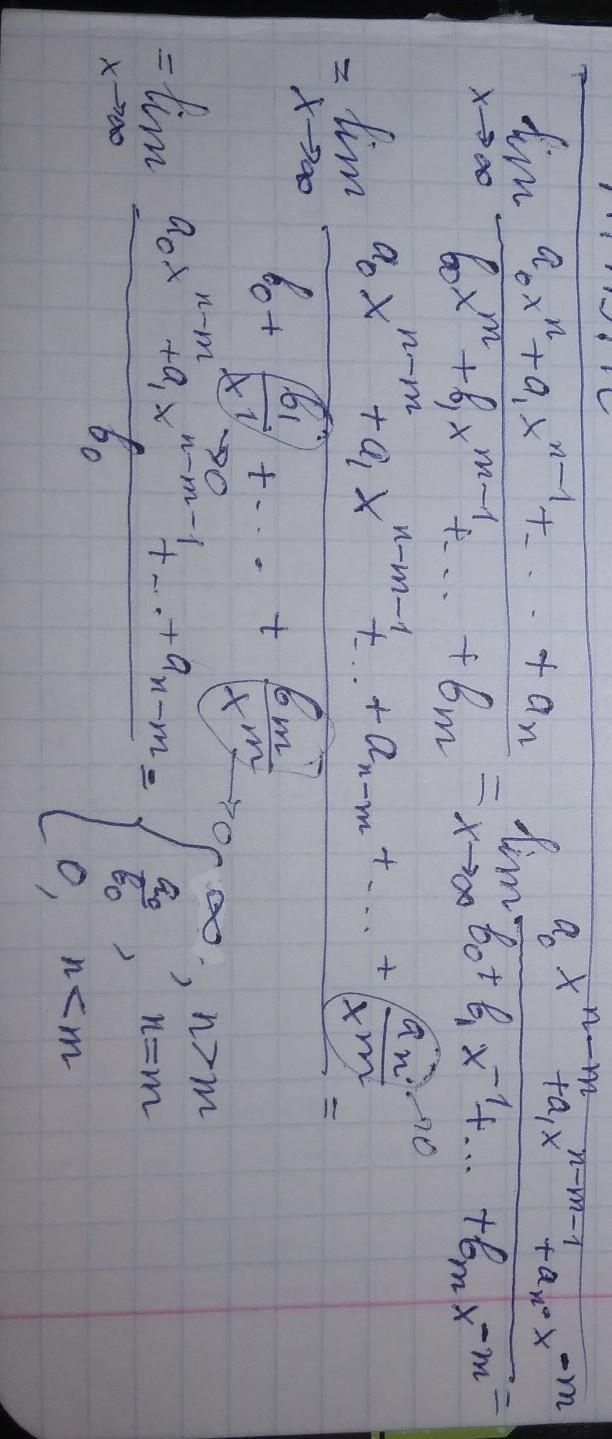 lim x→∞ (a₀xⁿ + a₁xⁿ⁻¹ + ... + aₙ) / (b₀xᵐ + b₁xᵐ⁻¹ + ... + bₘ) = lim x→∞ (a₀xⁿ⁻ᵐ + a₁xⁿ⁻ᵐ⁻¹ + aₙ·x⁻ᵐ) / (b₀ + b₁x⁻¹ + ... + bₘx⁻ᵐ) =
= lim x→∞ (a₀xⁿ⁻ᵐ + a₁xⁿ⁻ᵐ⁻¹ + ... + aₙ₋ₘ + ... + aₙ/xᵐ →0) / (b₀ + b₁/x¹ →0 + ... + bₘ/xᵐ →0) =
= lim x→∞ (a₀xⁿ⁻ᵐ + a₁xⁿ⁻ᵐ⁻¹ + ... + aₙ₋ₘ) / b₀ = { ∞, n>m
a₀/b₀, n=m
0, n<m